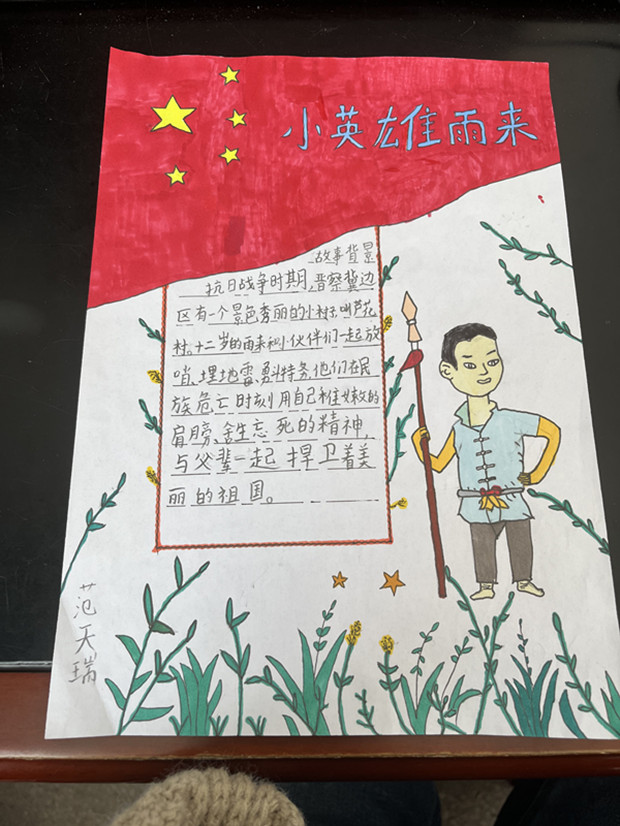 小英雄雨来
故事背景
抗日战争时期,晋察冀边
区有一个景色秀丽的小村子,叫芦花
村。十二岁的雨来和小伙伴们一起放
哨、埋地雷、勇斗特务,他们在民
族危亡时刻用自己稚嫩的
肩膀、舍生忘死的精神,
与父辈一起捍卫着美
丽的祖国。
范天瑞